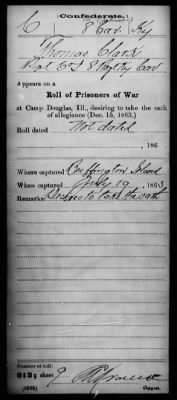 Confederate.
C 8 Cav. Ky
Thomas Clark
Appears on a
Roll of Prisoners of War
at Camp Douglas, Ill., desiring to take the oath
of allegiance (Dec. 15, 1863.)
Roll dated Not dated
, 186
Where captured Buffington Island
When captured July 19, 1863
Remarks: Desires to take the oath
Number of roll:
sheet 9
Copyist.